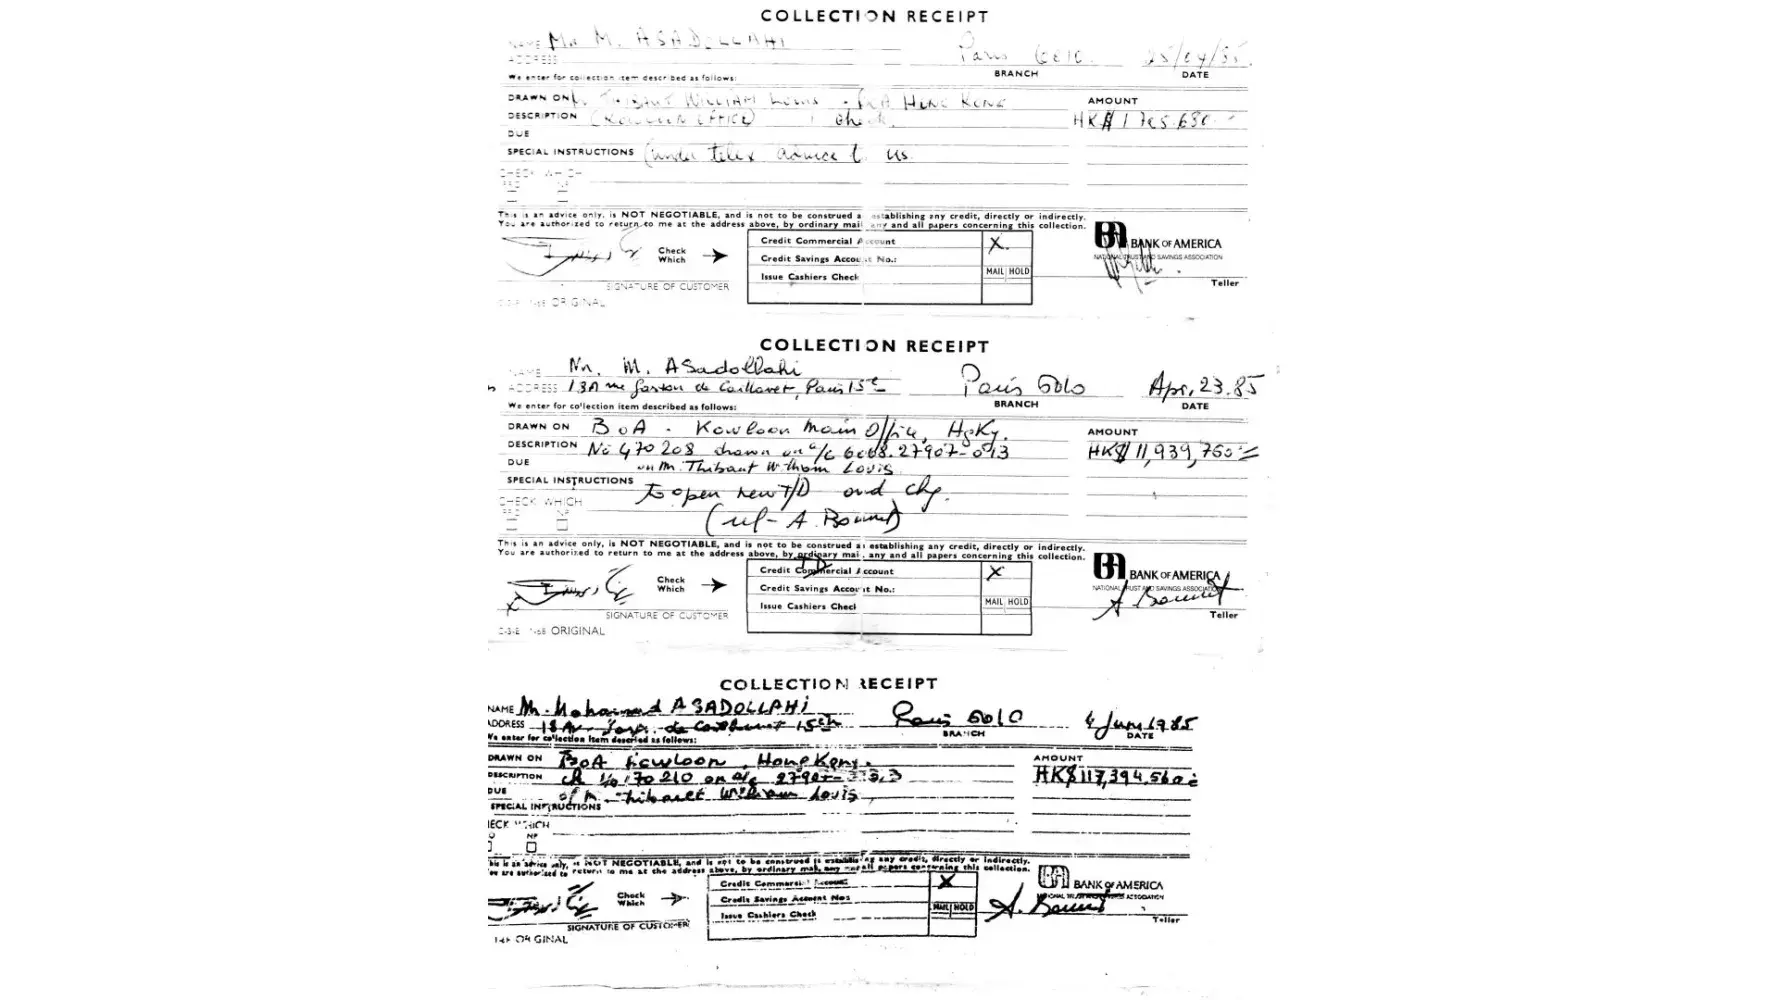 COLLECTION RECEIPT
NAME Mr M. ASADOLLAHI Paris 6010. 25/04/85.
ADDRESS BRANCH DATE
We enter for collection item described as follows:
DRAWN ON THIBAUT WILLIAM Louis - BoA HONG KONG AMOUNT
DESCRIPTION (KOWLOON OFFICE) 1 check. HK$
DUE
SPECIAL INSTRUCTIONS (under telex advice to us
CHECK WHICH
PRO NP
This is an advice only, is NOT NEGOTIABLE, and is not to be construed as establishing any credit, directly or indirectly.
You are authorized to return to me at the address above, by ordinary mail any and all papers concerning this collection.
Check Which
Credit Commercial Account X.
Credit Savings Account No.:
Issue Cashiers Check MAIL HOLD
BANK OF AMERICA
NATIONAL TRUST AND SAVINGS ASSOCIATION
SIGNATURE OF CUSTOMER Teller
ORIGINAL
COLLECTION RECEIPT
NAME Mr. M. ASadollahi
ADDRESS 13A rue Gaston de Caillavet, Paris 15e Paris 6010 Apr. 23. 85
We enter for collection item described as follows: BRANCH DATE
DRAWN ON BoA - Kowloon Main Office, HgKg. AMOUNT
DESCRIPTION No 470208 drawn on a/c 6068.27907-013 HK$ 11,939,760
DUE on M. Thibaut William Louis
SPECIAL INSTRUCTIONS to open new T/D and chg.
CHECK WHICH
PRO NP (ref - A. Bonnet)
This is an advice only, is NOT NEGOTIABLE, and is not to be construed as establishing any credit, directly or indirectly.
You are authorized to return to me at the address above, by ordinary mail, any and all papers concerning this collection.
Check Which
Credit Commercial Account TD X
Credit Savings Account No.:
Issue Cashiers Check MAIL HOLD
BANK OF AMERICA
NATIONAL TRUST AND SAVINGS ASSOCIATION
A. Bonnet
SIGNATURE OF CUSTOMER Teller
ORIGINAL
COLLECTION RECEIPT
NAME M. Mohamad ASADOLLAHi Paris 6010 4 June 1985
ADDRESS de Caillavet 15th BRANCH DATE
We enter for collection item described as follows:
DRAWN ON BoA Kowloon, Hong Kong. AMOUNT
DESCRIPTION HK$117,394.560
DUE of M. Thibault William Louis
SPECIAL INSTRUCTIONS
CHECK WHICH
NP
This is an advice only, is NOT NEGOTIABLE, and is not to be construed as establishing any credit, directly or indirectly.
You are authorized to return to me at the address above, by ordinary mail, any and all papers concerning this collection.
Check Which
Credit Commercial Account X
Credit Savings Account No:
Issue Cashiers Check MAIL HOLD
BANK OF AMERICA
NATIONAL TRUST AND SAVINGS ASSOCIATION
A. Bonnet
SIGNATURE OF CUSTOMER Teller
ORIGINAL